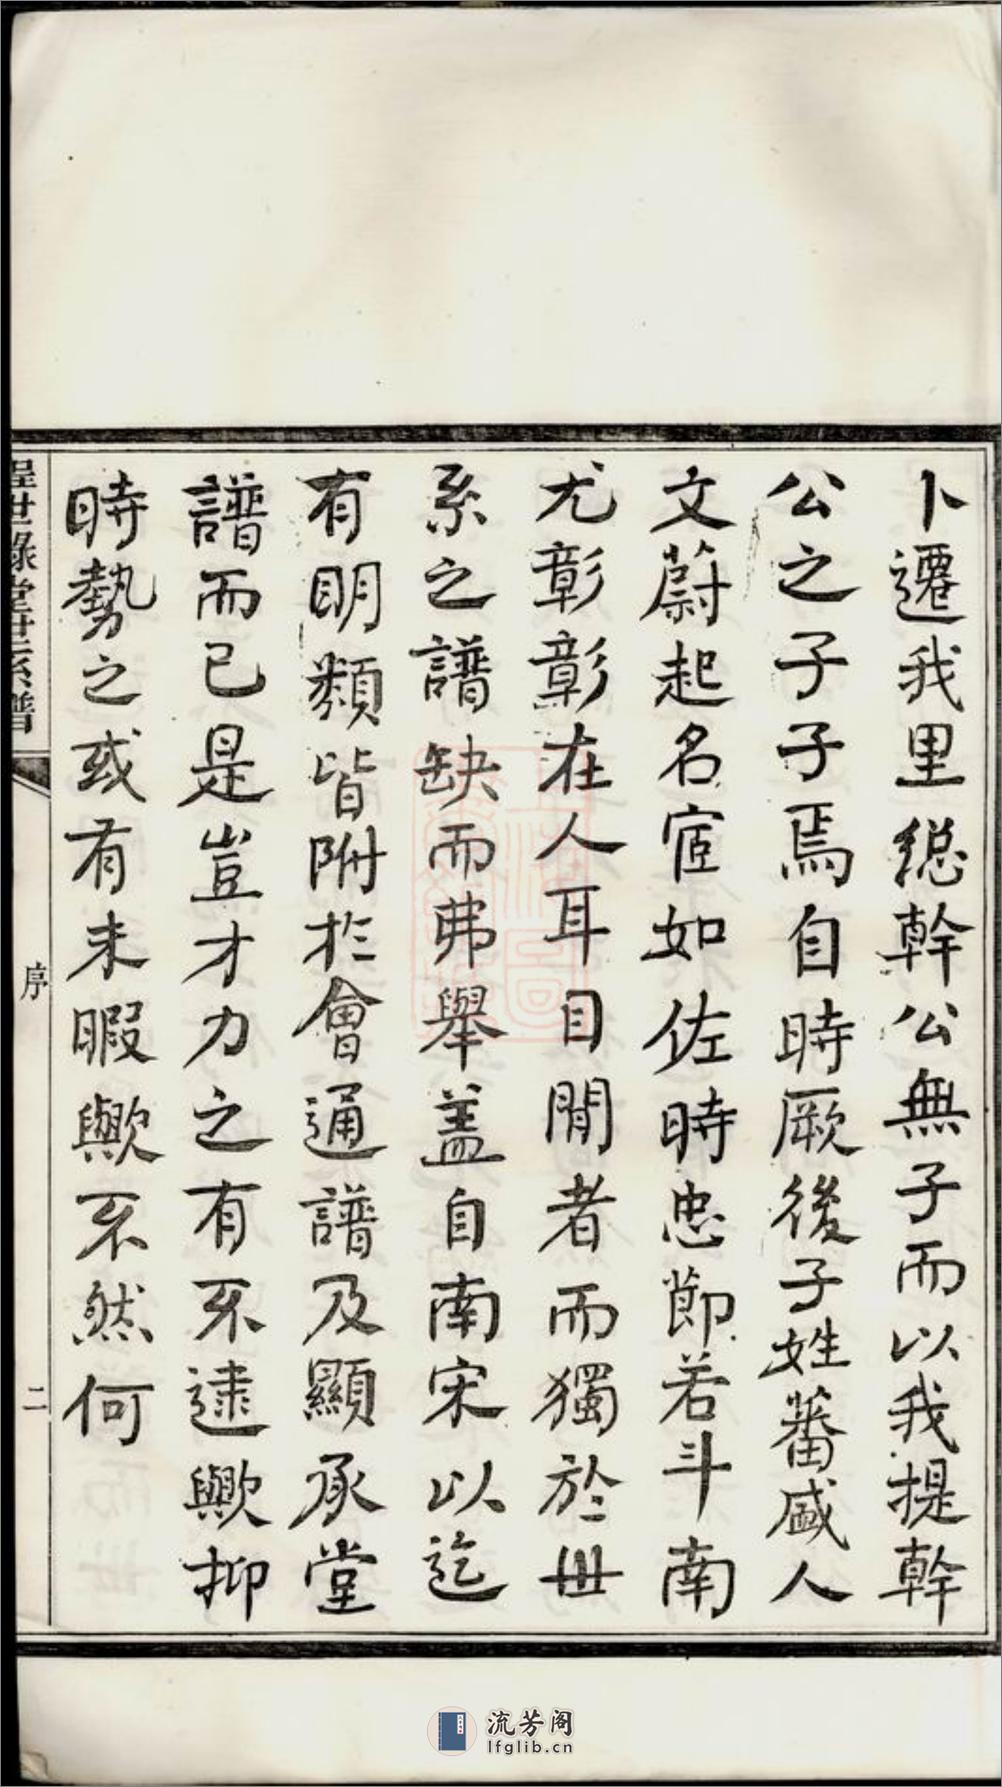 卜遷我里總幹公無子而以我提幹
公之子子焉自時厥後子姓蕃盛人
文蔚起名宦如佐時忠節若斗南
尤彰彰在人耳目間者而獨於世
系之譜缺而弗舉盖自南宋以迄
有明類皆附於會通譜及顯承堂
譜而已是豈才力之有不逮歟抑
時勢之或有未暇歟不然何
程世祿堂世系譜
序
二
流芳阁
lfglib.cn